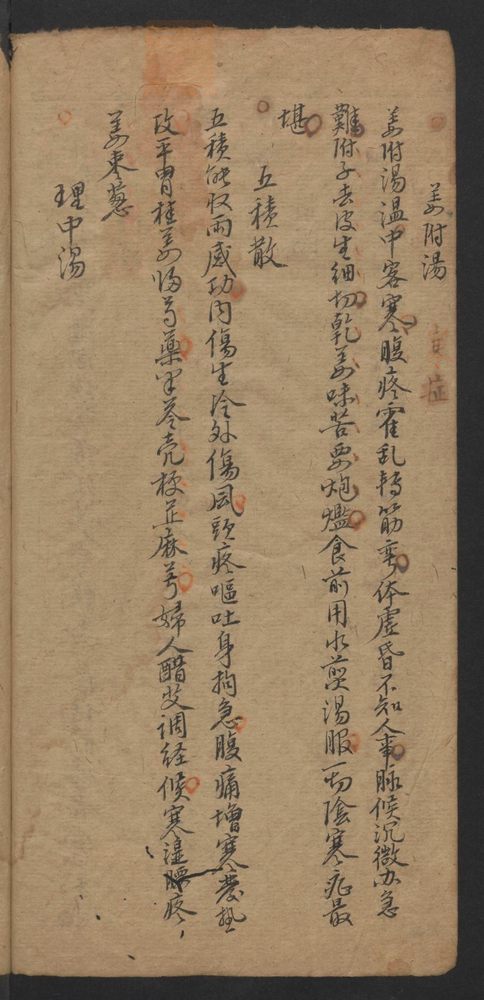 姜附湯
姜附湯温中客寒腹疼霍乱轉筋牽体虚昏不知人事脉候沉微办急
難附子去皮生細切乾姜味苦要炮爁食前用水煎湯服一切陰寒症最
堪
五積散
五積能收兩感功内傷生冷外傷風頭疼嘔吐身拘急腹痛增寒發热
攻平胃桂姜歸芍藥半苓壳梗芷麻芎婦人醋艾調経候寒湿腰疼
姜枣葱
理中湯